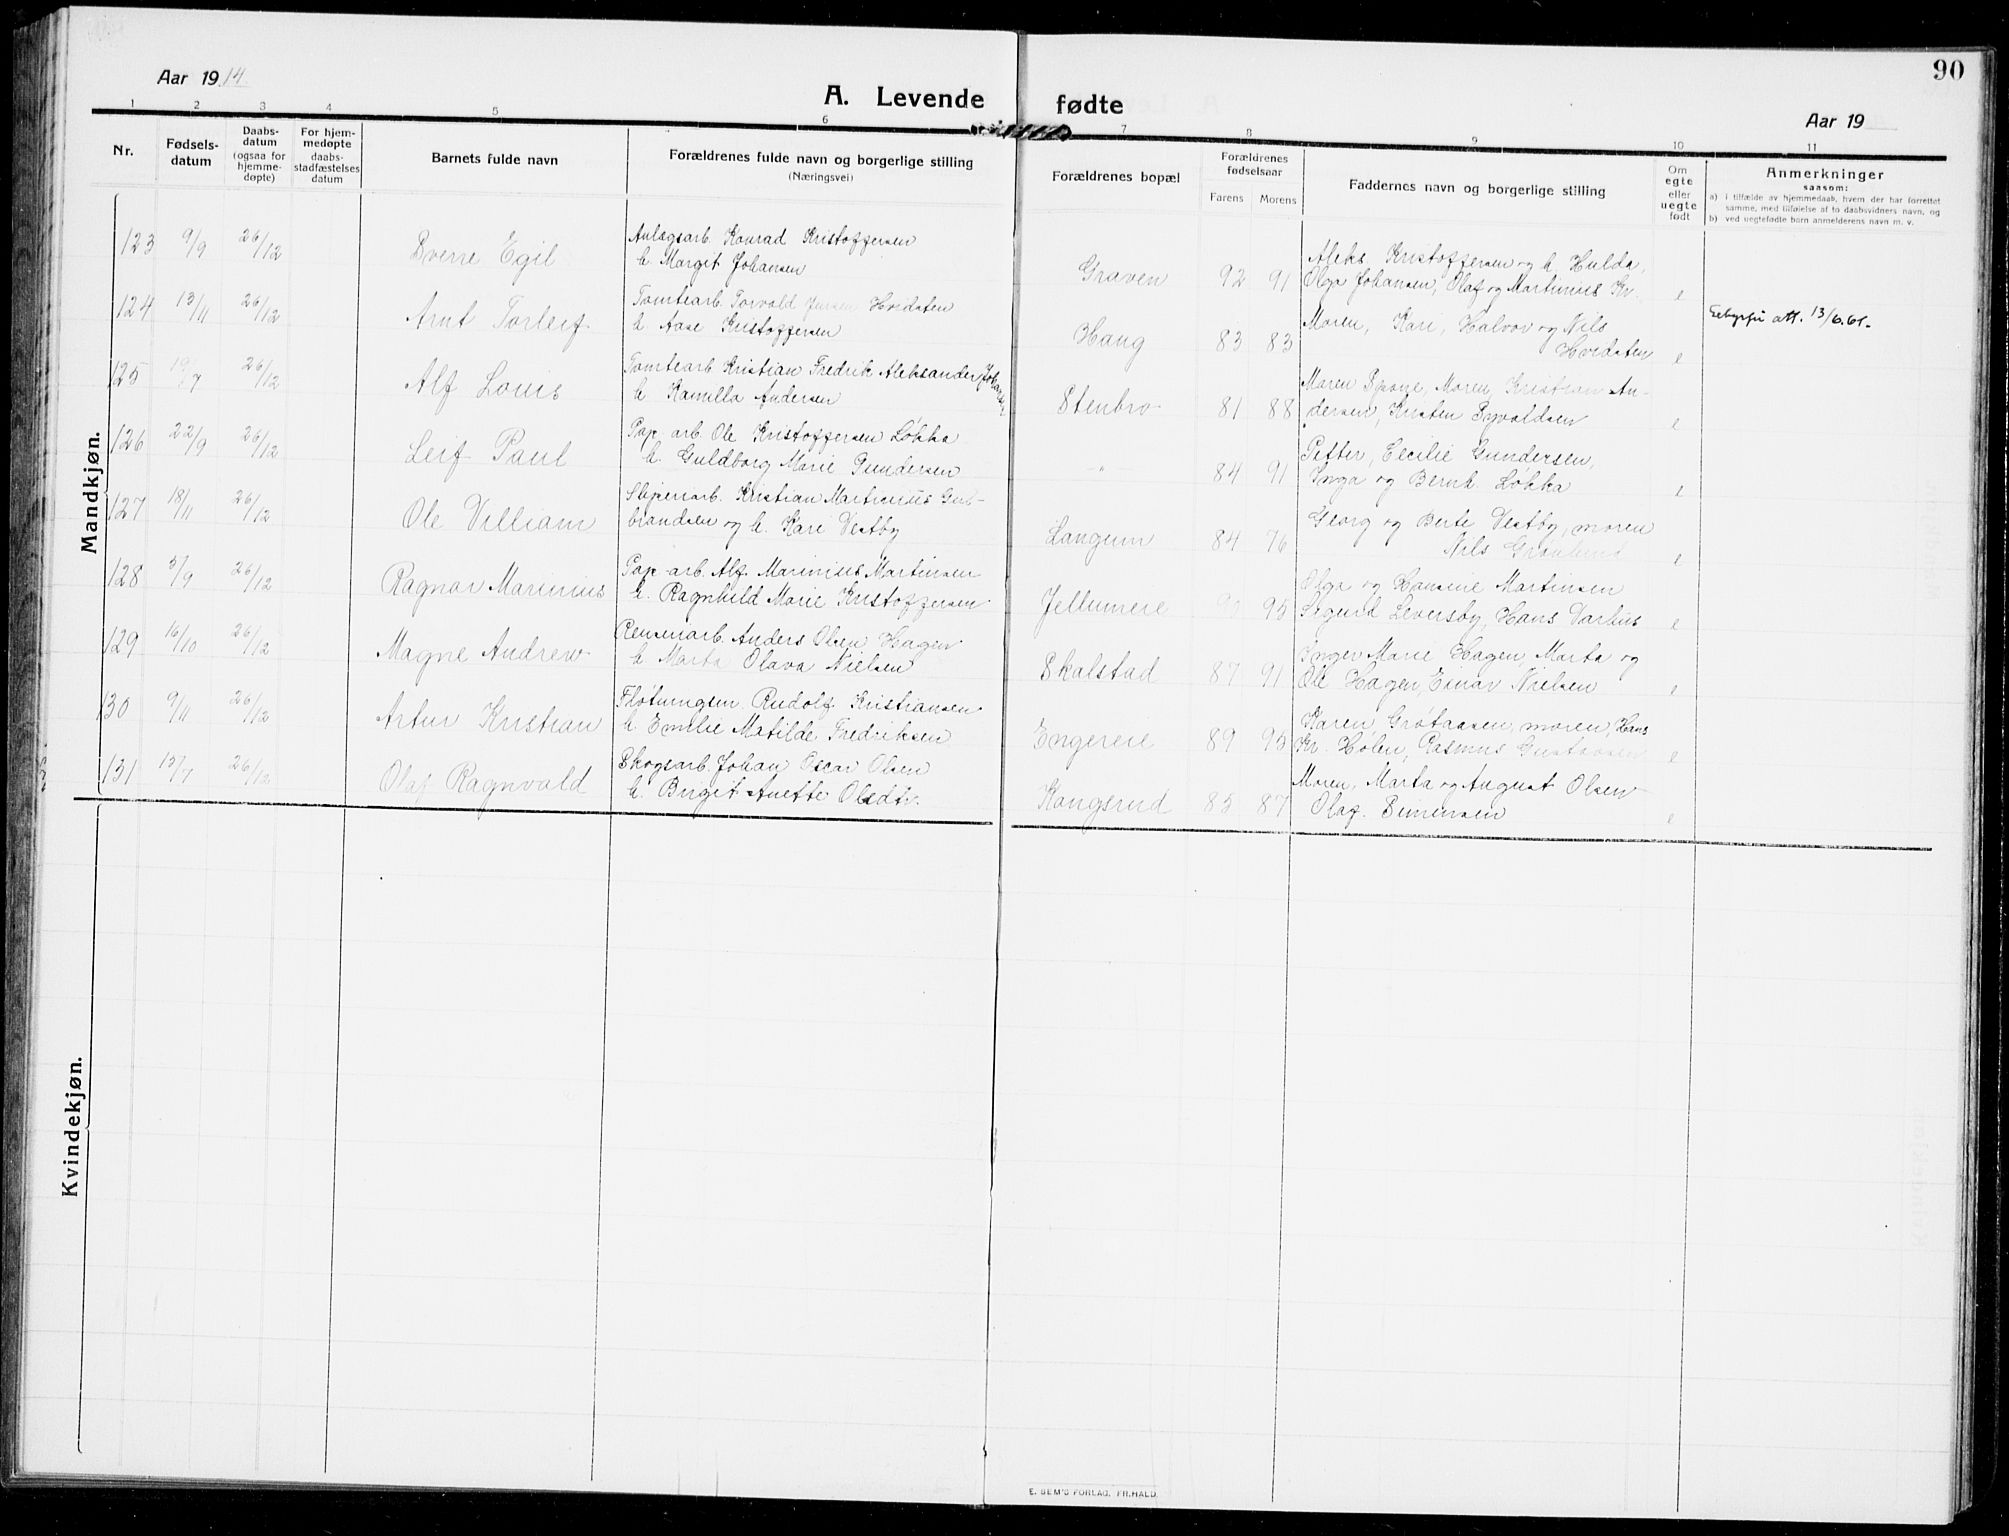 Aar 1914
A. Levende fødte
90
Aar 19
1 2 3 4 5 6 7 8 9 10 11
Nr.
Fødsels-
datum
Daabs-
datum
(ogsaa for
hjemme-
døpte)
For hjem-
medøpte
daabs-
stadfæstelses
datum
Barnets fulde navn
Forældrenes fulde navn og borgerlige stilling
(Næringsvei)
Forældrenes bopæl
Forældrenes
fødselsaar
Farens Morens
Faddernes navn og borgerlige stilling
Om
egte
eller
uegte
født
Anmerkninger
saasom:
a) i tilfælde av hjemmedaab, hvem der har forrettet
samme, med tilføielse af to daabsvidners navn, og
b) ved uegtefødte barn anmelderens navn m. v.
Mandkjøn.
123 9/9 26/12 Sverre Egil
Anlægsarb. Konrad Kristoffersen
h. Margit Johansen
Graven 92 91
Aleks Kristoffersen og h. Hulda,
Olga Johansen, Olaf og Martinius Kr. e
124 13/11 26/12 Arnt Torleif
Tomtearb. Torvald Jensen Hvidsten
h. Aase Kristoffersen
Haug 83 83
Moren, Kari, Halvor og Nils
Hvidsten e
att. 13/6.61.
125 19/7 26/12 Alf Louis
Tomtearb Kristian Fredrik Aleksander Johansen
h. Kamilla Andersen
Stenbro 81 88
Maren Moren, Kristian An-
dersen, Kristen Syvaldsen e
126 22/9 26/12 Leif Paul
Pap. arb. Ole Kristoffersen Løkka
h. Guldborg Marie Gundersen
-"- 84 91
Petter, Cecilie Gundersen,
Inga og Bernh. Løkka e
127 18/11 26/12 Ole Villiam
Sliperiarb. Kristian Martinius Gul-
brandsen og h. Kari Vestby
Langum 84 76
Georg og Berte Vestby, moren
Nils Grønlund e
128 5/9 26/12 Ragnar Marinius
Pap. arb. Alf Marinius Martinsen
h. Ragnhild Marie Kristoffersen
Jellumeie 90 95
Olga og Hansine Martinsen
Sigurd Leversby, Hans e
129 16/10 26/12 Magne Andrew
Rensenarb. Anders Olsen Hagen
h. Marta Olava Nielsen
Skalstad 87 91
Inger Marie Hagen, Marta og
Ole Hagen, Einar Nielsen e
130 9/11 26/12 Artur Kristian
Fløtningsm. Rudolf Kristiansen
h. Emilie Matilde Fredriksen
Engereie 89 95
Karen Grøtaasen, moren, Hans
Kr. Hølen, Rasmus Gustavsen e
131 13/7 26/12 Olaf Ragnvald
Skogsarb. Johan Oscar Olsen
h. Birgit Anette Olsdtr.
Kongsrud 85 87
Moren, Marta og August Olsen
Olaf Simensen e
Kvindekjøn.
E. SEM'S FORLAG, FR.HALD.